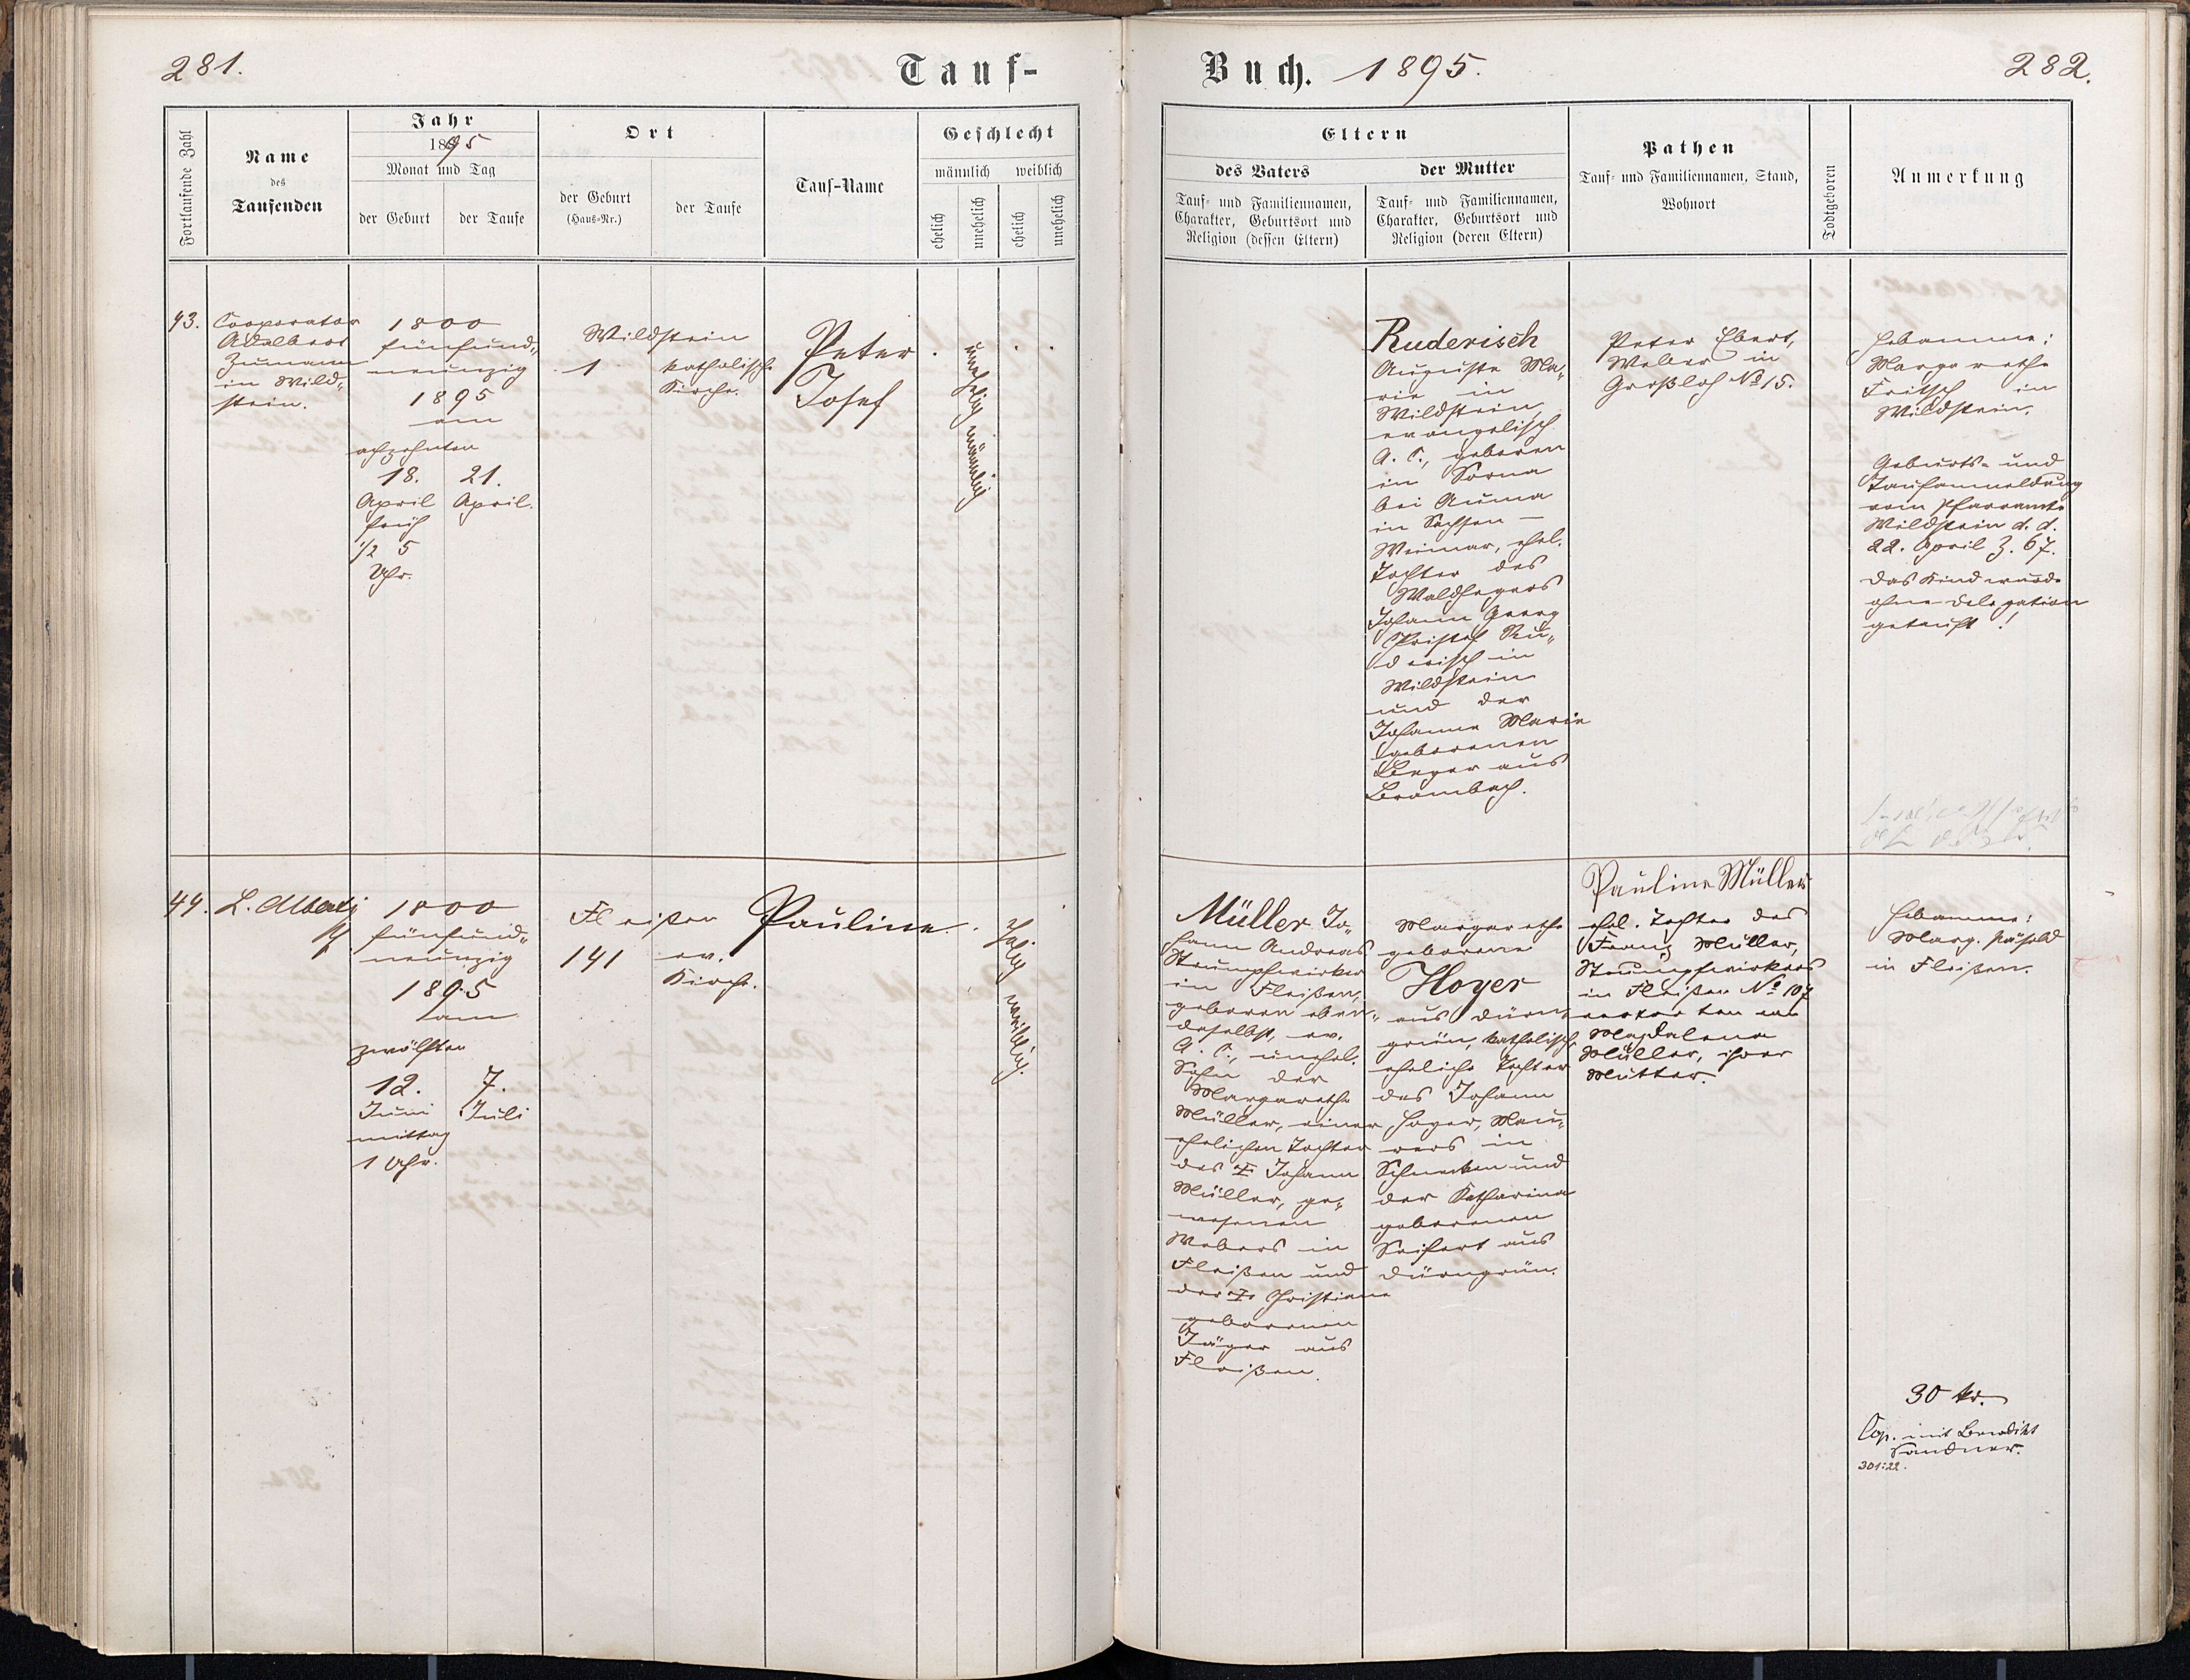 281.
Tauf-
Fortlaufende Zahl
Name
des
Taufenden
Jahr
1895
Monat und Tag
der Geburt
der Taufe
Ort
der Geburt
(Haus-Nr.)
der Taufe
Tauf-Name
Geschlecht
männlich weiblich
ehelich
unehelich
ehelich
unehelich
43.
Cooperator
Adalbert
in Wild-
stein.
1800
fünfund-
neunzig
1895
am
achzehnten
18.
April
früh
1/2 5
Uhr.
21.
April.
Wildstein
1
katholische
Kirche.
Peter
Josef
unehelich männlich
44.
L. Alberti
Pf
1800
fünfund-
neunzig
1895
am
zwölften
12.
Juni
mittag
1 Uhr.
7.
Juli
Fleißen
141
ev.
Kirche.
Pauline
Ehelich weiblich.
Buch. 1895.
282.
Eltern
des Vaters
Tauf- und Familiennamen,
Charakter, Geburtsort und
Religion (dessen Eltern)
der Mutter
Tauf- und Familiennamen,
Charakter, Geburtsort und
Religion (deren Eltern)
Pathen
Tauf- und Familiennamen, Stand,
Wohnort
Todtgeboren
Anmerkung
Ruderisch
Auguste Ma-
rie in
Wildstein,
evangelisch
A. C., geboren
in Sorna
bei Auma
in Sachsen-
Weimar, ehel.
Tochter des
Waldhegers
Johann Georg
Christof Ru-
derisch in
Wildstein
und der
Johanne Marie
geborenen
Berger aus
Brambach.
Peter Ebert,
Weber in
Großloh No 15.
Hebamme:
Margarethe
Fritsch in
Wildstein.
Geburts- und
Taufanmeldung
vom Pfarramte
Wildstein d. d.
22. April Z. 67.
Das Kind wurde
ohne Delegation
getauft!
Müller Jo-
hann Andreas
Strumpfwirker
in Fleißen,
geboren eben-
daselbst, ev.
A. C., unehel.
Sohn der
Margarethe
Müller, einer
ehelichen Tochter
des † Johann
Müller, ge-
wesenen
Webers in
Fleißen und
der † Christiane
geborenen
Jäger aus
Fleißen.
Margarethe
geborene
Hoyer
aus Dürn-
grün, katholisch,
eheliche Tochter
des Johann
Hoyer, Mau-
rers in
Schnecken und
der Katharina
geborenen
Seifert aus
Dürngrün.
Pauline Müller
ehel. Tochter des
Franz Müller,
Strumpfwirkers
in Fleißen No 107
vertreten von
Magdalena
Müller, ihrer
Mutter.
Hebamme:
Marg.
in Fleißen.
30 kr.
Cop. mit Benedikt
Sandner.
301:22.